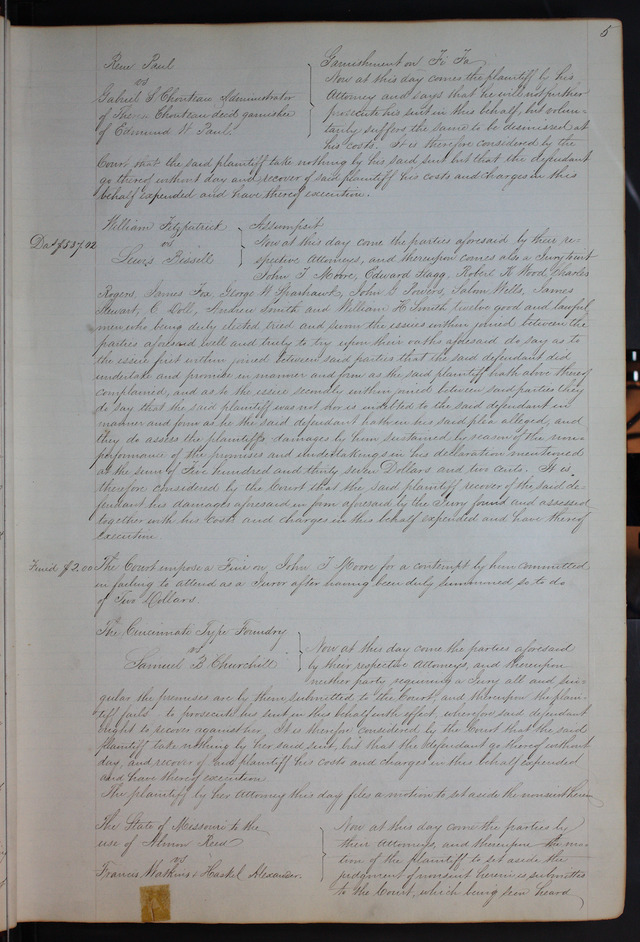 5
Rene Paul
vs
Gabriel S. Chouteau Administrator
of The. Chouteau decd garnishee
of Edmund W Paul.
Garnishment on Fi Fa
Now at this day comes the plaintiff by his
Attorney and says that he will not further
prosecute his suit in this behalf, but volun-
tarily suffers the same to be dismissed at
his costs. It is therefore considered by the
Court that the said plaintiff take nothing by his said suit but that the defendant
go thereof without day and recover of said plaintiff his costs and charges in this
behalf expended and have thereof execution.
Dam $537.02
William Fitzpatrick
vs
Lewis Bissell
Assumpsit
Now at this day come the parties aforesaid by their re-
spective Attorneys, and thereupon comes also a Jury towit
John T Moore, Edward Flagg, Robert K Wood, Charles
Rogers, James Fox, George W Sparhawk, John C Powers, Salom Wells, James
Stewart, C Doll, Andrew Smith and William H Smith, twelve good and lawful
men who being duly elected tried and sworn the issues within joined between the
parties aforesaid well and truly to try upon their oaths aforesaid do say as to
the issue first within joined between said parties that the said defendant did
undertake and promise in manner and form as the said plaintiff hath above thereof
complained, and as to the issue secondly within joined between said parties they
do say that the said plaintiff was not nor is indebted to the said defendant in
manner and form as he the said defendant hath in his said plea alleged, and
they do assess the plaintiffs damages by him sustained by reason of the non-
performance of the promises and undertakings in his declaration mentioned
at the sum of Five hundred and thirty seven Dollars and two cents. It is
therefore considered by the Court that the said plaintiff recover of the said de-
fendant his damages aforesaid in form aforesaid by the Jury found and assessed
together with his Costs and charges in this behalf expended and have thereof
execution.
Fined $2.00
The Court impose a Fine on John T Moore for a contempt by him committed
in failing to attend as a Juror after having been duly summoned so to do
of Two Dollars.
The Cincinnati Type Foundry
vs
Samuel B Churchill
Now at this day come the parties aforesaid
by their respective Attorneys, and thereupon
neither party requiring a Jury all and sin-
gular the premises are by them submitted to the Court, and thereupon the plain-
tiff fails to prosecute his suit in this behalf with effect, wherefore said defendant
ought to recover against her, It is therefore considered by the Court that the said
plaintiff take nothing by her said suit, but that the defendant go thereof without
day, and recover of said plaintiff his costs and charges in this behalf expended
and have thereof execution.
The plaintiff by her Attorney this day files a motion to set aside the nonsuit herein
The State of Missouri to the
use of Almon Reed
vs
Francis Watkins & Haskel Alexander.
Now at this day come the parties by
their Attorneys, and thereupon the mo-
tion of the plaintiff to set aside the
judgment of nonsuit herein is submitted
to the Court, which being seen heard